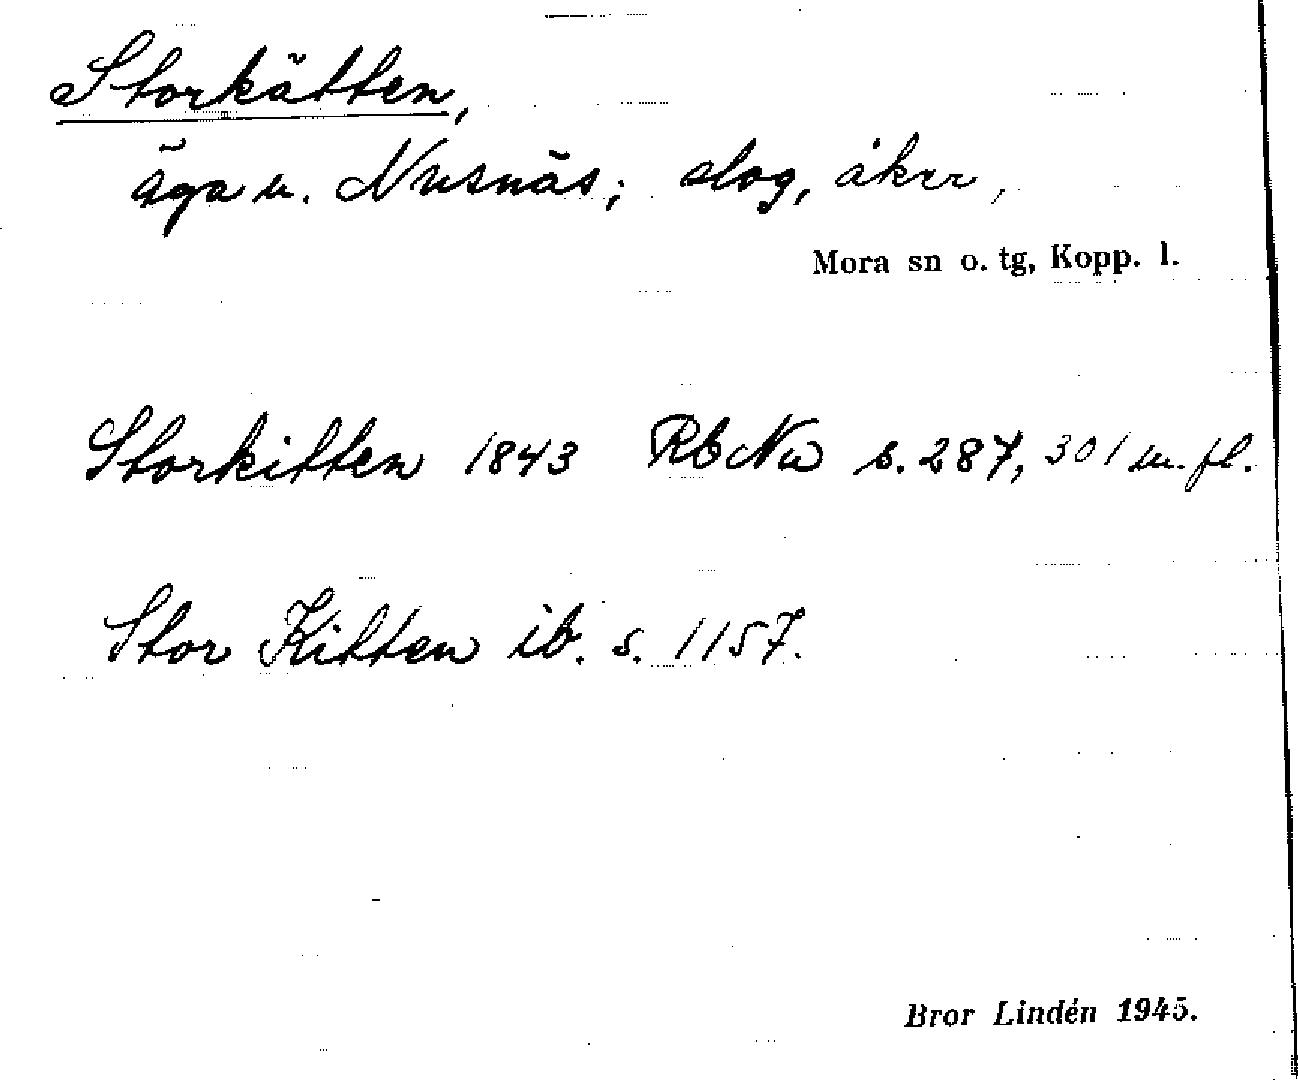 Storkätten,
äga u. Nusnäs; slog, åkrr,
Mora sn o. tg, Kopp. l.
Storkitten 1843 RbNu s. 287, 301 m. fl.
Stor Kitten ib. s. 1157.
Bror Lindén 1945.